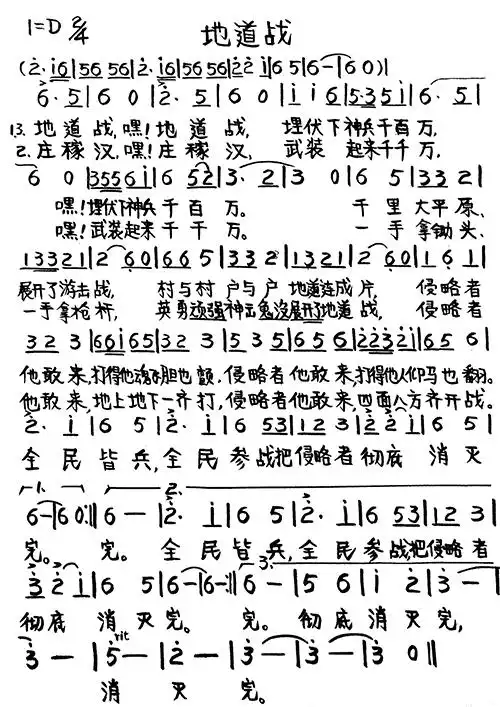 1=D 2/4
地道战
(2̇· i̇6|56 56|2̇· i̇6|56 56|2̇2̇ i̇|6 5|6-|6 0)|
6· 5|6 0|2̇· 5|6 0|i̇ i̇ 6|5·35 i̇|6· 5|
1.3. 地道战,嘿!地道战, 埋伏下神兵千百万,
2. 庄稼汉,嘿!庄稼汉, 武装起来千千万,
6 0|3556i̇|6 52|3· 2|3 0|6 5|332|
嘿!埋伏下神兵千百万。 千里大平原、
嘿!武装起来千千万。 一手拿锄头、
13321|2 60|665|332|1321|2 60|1 6 1|
展开了游击战, 村与村户与户地道连成片, 侵略者
一手拿枪杆, 英勇顽强神出鬼没展开了地道战, 侵略者
323|66i̇65|323|535|656|22321|656|
他敢来,打得他魂飞胆也颤,侵略者他敢来,打得他人仰马也翻。
他敢来,地上地下一齐打,侵略者他敢来,四面八方齐开战。
2̇· i̇|6 5|2̇· i̇|6 53|12 3|2̇2̇ i̇|6 5|
全民皆兵,全民参战把侵略者彻底消灭
1. 2.
6-|6 0:‖6-|2̇· i̇|6 5|2̇· i̇|6 53|12 3|
完。 完。 全民皆兵,全民参战,把侵略者
3.
3̇ 2̇ i̇|6 5|6-|6-:‖6-|5 6|i̇ 2̇|3̇-|
彻底消灭完。 完。 彻底消灭完,
rit
3̇-|5̇-|2̇-|3̇-|3̇-|3̇ 0‖
消灭完。